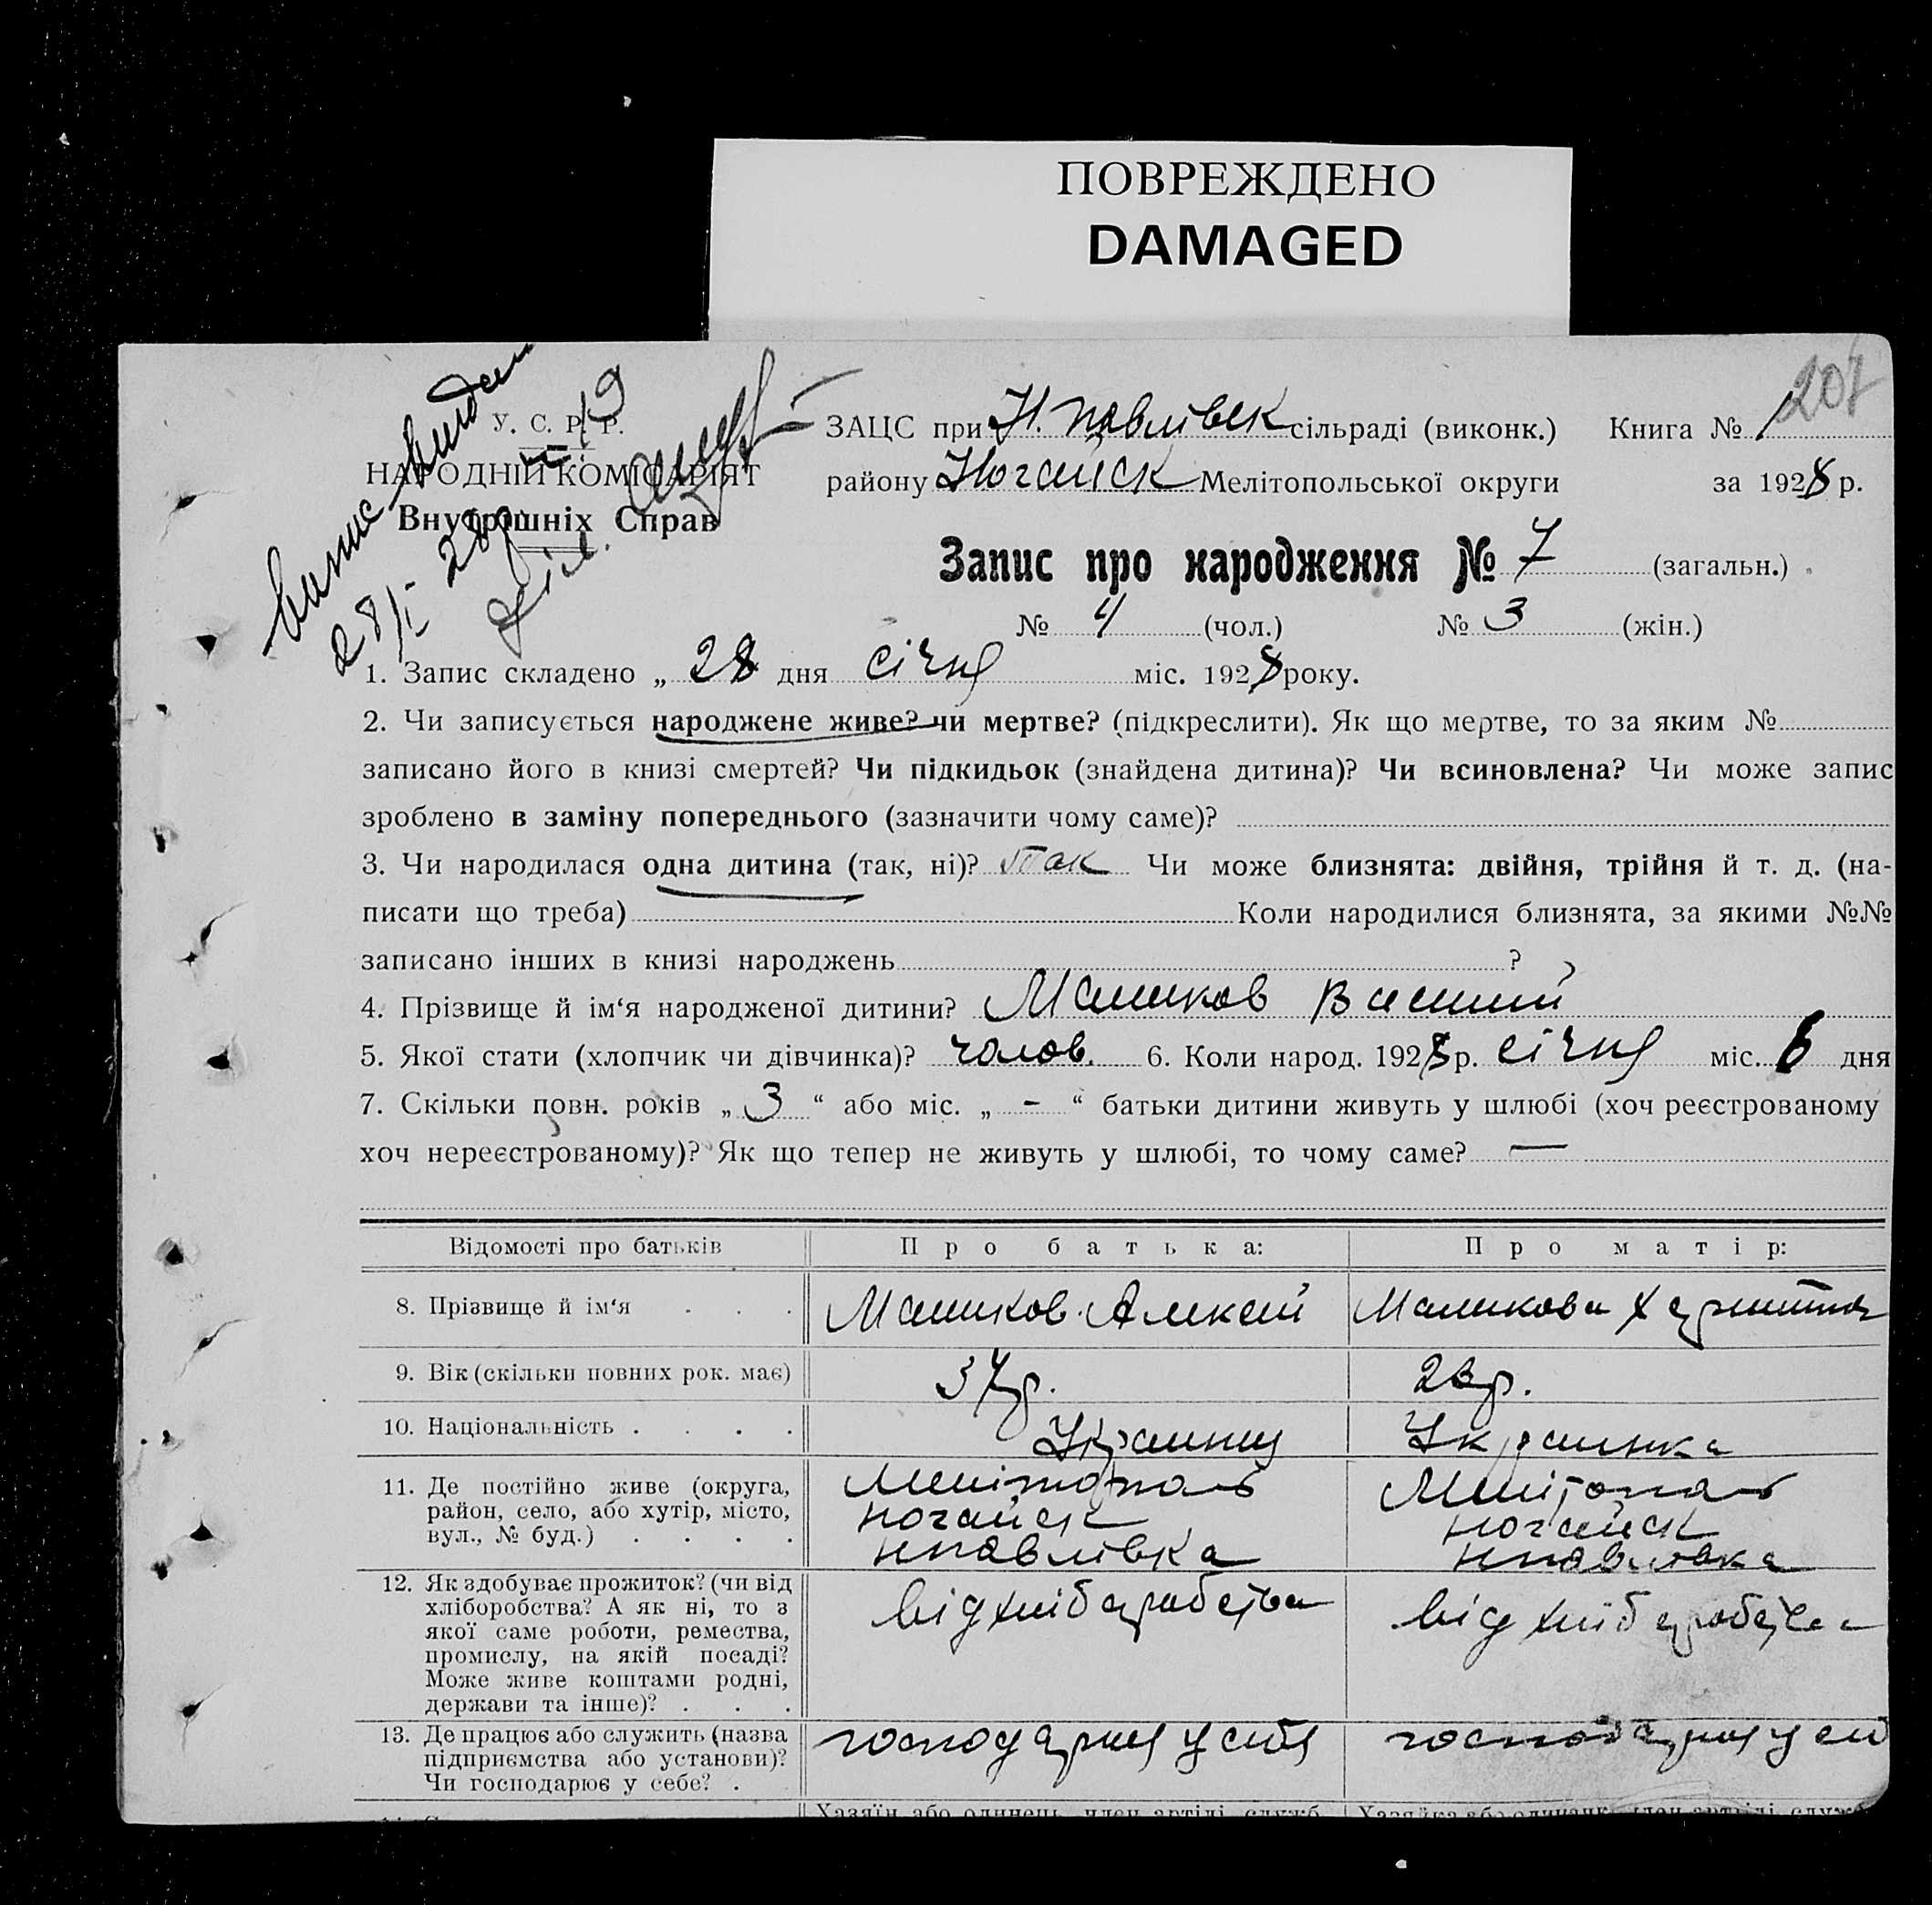 ПОВРЕЖДЕНО
DAMAGED
207
У. С. Р. Р.
НАРОДНІЙ КОМІСАРІЯТ
Внутрішніх Справ
выпис выдан
28/I 28
№ 19
ЗАЦС при Н. павлівск сільраді (виконк.) Книга № 1
району Ногайск Мелітопольської округи за 1928 р.
Запис про народження № 7 (загальн.)
№ 4 (чол.) № 3 (жін.)
1. Запис складено „ 28 дня січня міс. 1928 року.
2. Чи записується народжене живе? чи мертве? (підкреслити). Як що мертве, то за яким №
записано його в книзі смертей? Чи підкидьок (знайдена дитина)? Чи всиновлена? Чи може запис
зроблено в заміну попереднього (зазначити чому саме)?
3. Чи народилася одна дитина (так, ні)? так Чи може близнята: двійня, трійня й т. д. (на-
писати що треба) Коли народилися близнята, за якими №№
записано інших в книзі народжень ?
4. Прізвище й ім‘я народженої дитини? Маликов
5. Якої стати (хлопчик чи дівчинка)? чолов. 6. Коли народ. 1928 р. січня міс. 6 дня
7. Скільки повн. років „ 3 “ або міс. „ - “ батьки дитини живуть у шлюбі (хоч реєстрованому
хоч нереєстрованому)? Як що тепер не живуть у шлюбі, то чому саме? —
Відомості про батьків Про батька: Про матір:
8. Прізвище й ім‘я . . . Маликов Алексий Маликова Харитина
9. Вік (скільки повних рок. має) 37р. р.
10. Національність . . . . Украинец Украинка
11. Де постійно живе (округа, Мелітополь Мелітополь
район, село, або хутір, місто, ногайск ногайск
вул., № буд.) . . . . нпавлівка нпавлівка
12. Як здобуває прожиток? (чи від від хлібаробства від хлібаробства
хліборобства? А як ні, то з
якої саме роботи, ремества,
промислу, на якій посаді?
Може живе коштами родні,
держави та інше)? . . .
13. Де працює або служить (назва господарює у себя господарює у
підприємства або установи)?
Чи господарює у себе? .
Хазяїн або одинець, член артілі, служб. Хазяйка або одиначк. член артілі, служб